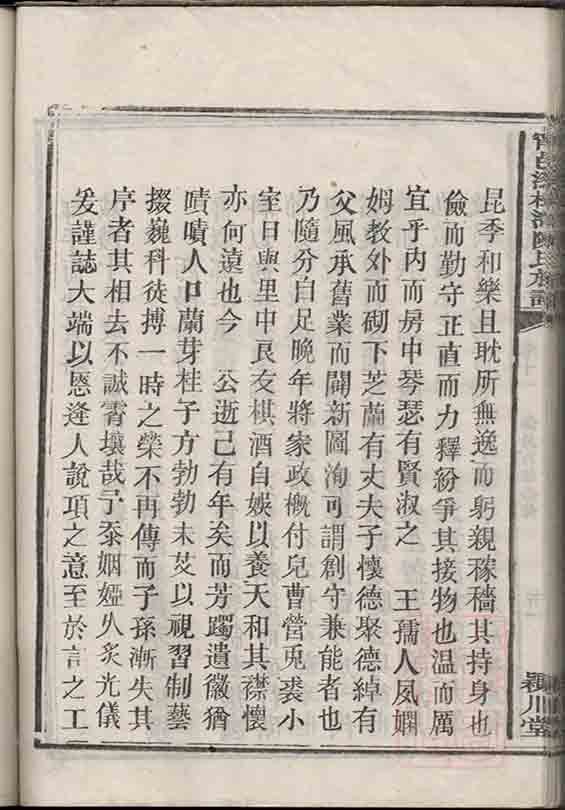 昆季和樂且耽所無逸而躬親稼穡其持身也
儉而勤守正直而力釋紛爭其接物也溫而厲
宜乎内而房中琴瑟有賢淑之 王孺人夙嫻
姆教外而砌下芝蘭有丈夫子懷德聚德綽有
父風承舊業而闢新圖洵可謂創守兼能者也
乃隨分自足晚年將家政概付兒曹營菟裘小
室日與里中良友棋酒自娛以養天和其襟懷
亦何遠也今 公逝已有年矣而芳躅遺徽猶
嘖嘖人口蘭芽桂子方勃勃未艾以視習制藝
掇巍科徒搏一時之榮不再傳而子孫漸失其
序者其相去不誠霄壤哉予忝姻婭久炙光儀
爰謹誌大端以慝逢人說項之意至於言之工
陳氏族譜
潁川堂